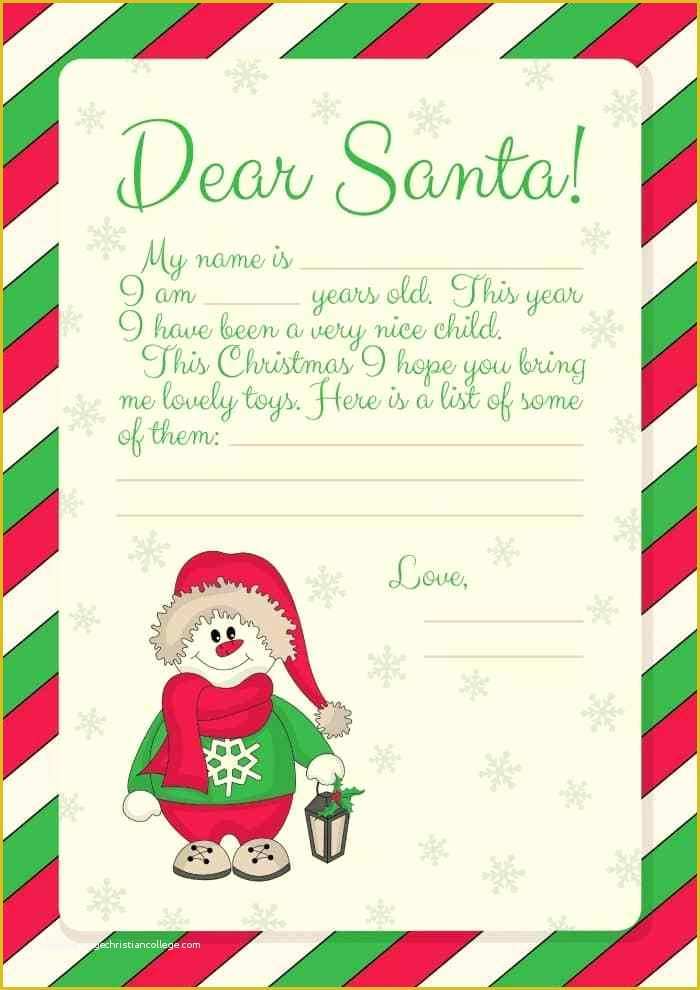 Dear Santa!
My name is
I am years old. This year
I have been a very nice child.
This Christmas I hope you bring
me lovely toys. Here is a list of some
of them:
Love,
gechristiancollege.com